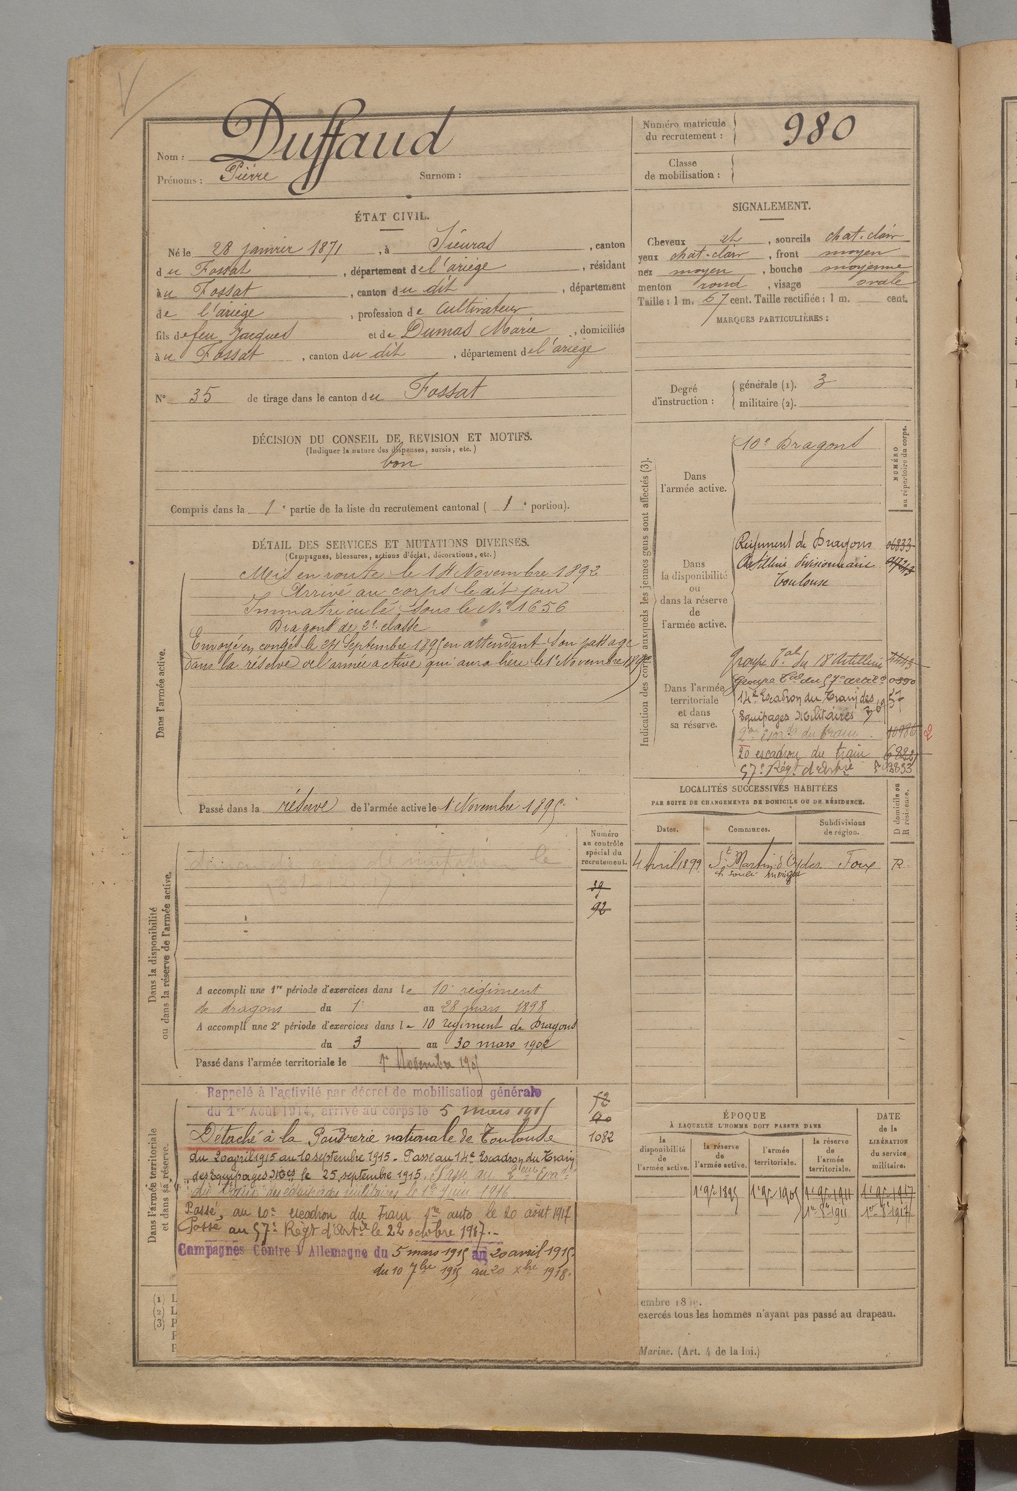 Nom : Duffaud
Prénoms : Pierre Surnom :
Numéro matricule du recrutement : 980
Classe de mobilisation :
ÉTAT CIVIL.
Né le 28 janvier 1871, à Sieuras, canton
du Fossat, département de l'ariège, résidant
à u Fossat, canton du dit, département
de l'ariège, profession de Cultivateur
fils de feu Jacques et de Dumas Marie, domiciliés
à u Fossat, canton du dit, département de l'ariège
N° 35 de tirage dans le canton du Fossat
DÉCISION DU CONSEIL DE REVISION ET MOTIFS.
(Indiquer la nature des dispenses, sursis, etc.)
bon
Compris dans la 1e partie de la liste du recrutement cantonal (1e portion).
SIGNALEMENT.
Cheveux et, sourcils chat-clair
yeux chat-clair, front moyen
nez moyen, bouche moyenne
menton rond, visage ovale
Taille : 1 m. 67 cent. Taille rectifiée : 1 m. cent.
MARQUES PARTICULIÈRES :
Degré d'instruction : générale (1). 3
militaire (2).
DÉTAIL DES SERVICES ET MUTATIONS DIVERSES.
(Campagnes, blessures, actions d'éclat, décorations, etc.)
Dans l'armée active.
Mis en route le 14 Novembre 1892
Arrivé au corps le dit jour
Immatriculé sous le N° 1656
Dragons de 2e classe
Envoyé en congé le 24 Septembre 1895 en attendant son passage
dans la réserve de l'armée active qui aura lieu le 1er Novembre 1895
Passé dans la réserve de l'armée active le 1 Novembre 1895
Indication des corps auxquels les jeunes gens sont affectés (3).
NUMÉRO au répertoire du corps.
Dans l'armée active.
10e Dragons
Dans la disponibilité ou dans la réserve de l'armée active.
Régiment de Dragons
Artillerie divisionnaire
Toulouse
Dans l'armée territoriale et dans sa réserve.
Groupe Tal du 18e Artillerie
Groupe Tal du 57e
14e Escadron du Train des
Equipages Militaires
20 escadron du train
57e Régt d'Artie
LOCALITÉS SUCCESSIVES HABITÉES
PAR SUITE DE CHANGEMENTS DE DOMICILE OU DE RÉSIDENCE.
D domicile ou R résidence.
Dates. Communes. Subdivisions de région.
4 Avril 1899 St Martin d'Oydes Foix R
Dans la disponibilité ou dans la réserve de l'armée active.
Numéro au contrôle spécial du recrutement.
39
92
A accompli une 1re période d'exercices dans le 10e régiment
de dragons du 1er au 28 mars 1898
A accompli une 2e période d'exercices dans le 10 régiment de Dragons
du 3 au 30 mars 1902
Passé dans l'armée territoriale le 1er Novembre 1905
Dans l'armée territoriale et dans sa réserve.
Rappelé à l'activité par décret de mobilisation générale
du 1er Août 1914, arrivé au corps le 5 mars 1915
Détaché à la Poudrerie nationale de Toulouse
du 20 avril 1915 au 10 septembre 1915. Passé au 14e Escadron du Train
des Equipages Mres le 25 septembre 1915.
Passé au 20e escadron du Train le 20 août 1917
Passé au 57e Régt d'Artie le 22 octobre 1917.
Campagnes Contre l'Allemagne du 5 mars 1915 au 20 avril 1915
du 10 7bre 1915 au 20 xbre 1918.
1082
ÉPOQUE
À LAQUELLE L'HOMME DOIT PASSER DANS
la disponibilité de l'armée active.
la réserve de l'armée active.
l'armée territoriale.
la réserve de l'armée territoriale.
DATE de la LIBÉRATION du service militaire.
1er 9bre 1895 1er 9bre 1905 1er 9bre 1911 1er 9bre 1917
1er 8bre 1911 1er 8bre 1917
(1) L
(2) L
(3) P
exercés tous les hommes n'ayant pas passé au drapeau.
Marine. (Art. 4 de la loi.)